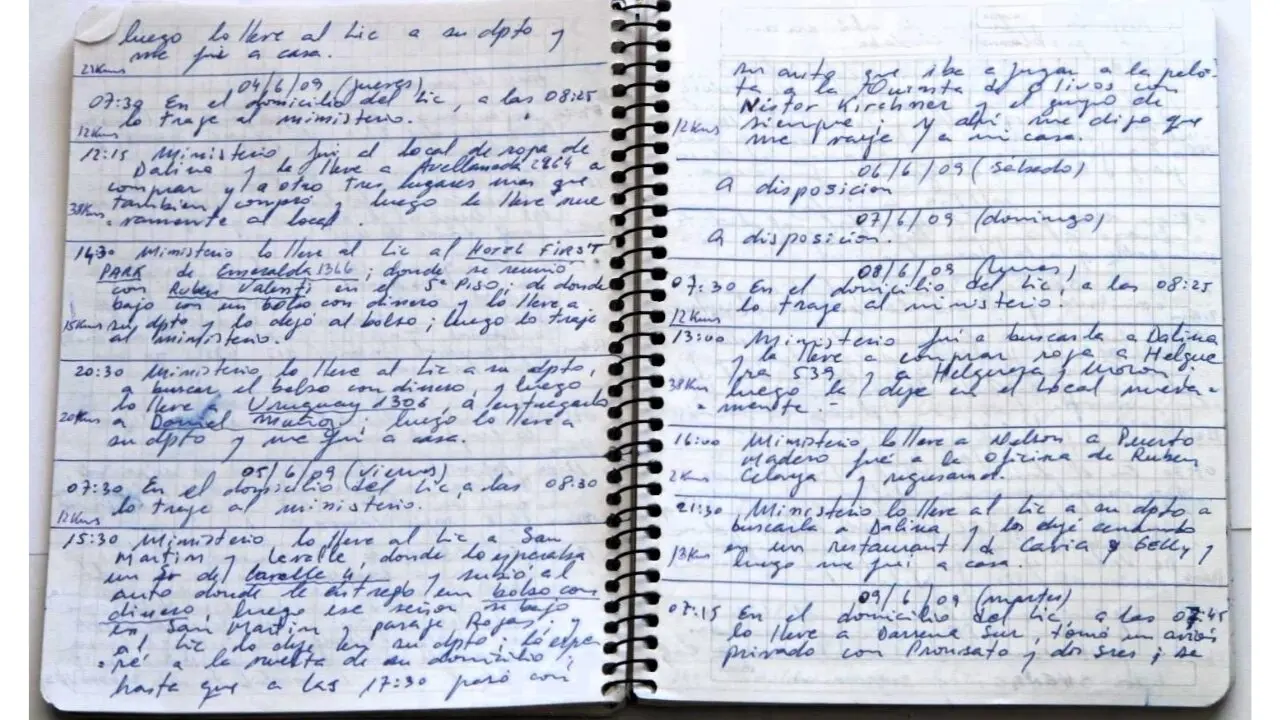 luego lo lleve al Lic a su dpto y
me fui a casa.
04/6/09 (jueves)
07:30 En el domicilio del Lic, a las 08:25
lo traje al ministerio.
12Kms
12:15 Ministerio fui al local de ropa de
Dalina y la lleve a Avellaneda 2964 a
comprar y a otro tres lugares mas que
tambien compró y luego la lleve nue
38Kms
vamente al local.
14:30 Ministerio lo lleve al Lic al HOTEL FIRST
PARK de Esmeralda 1366; donde se reunió
con Ruben Valenti en el 5º PISO; de donde
bajo con un bolso con dinero y lo lleve a
15Kms su dpto y lo dejó al bolso; luego lo traje
al ministerio.
20:30 Ministerio lo lleve al Lic a su dpto,
a buscar el bolso con dinero y luego
lo lleve a Uruguay 1306, a entregarlo
20Kms a Daniel Muñoz; luego lo lleve a
su dpto y me fui a casa.
05/6/09 (viernes)
07:30 En el domicilio del Lic, a las 08:30
lo traje al ministerio.
12Kms
15:30 Ministerio lo lleve al Lic a San
Martin y Lavalle, donde lo esperaba
un sr de Lavalle y subió al
auto donde le entregó un bolso con
dinero, luego ese señor se bajo
en San Martin y pasaje Rojas; y
al Lic lo deje en su dpto; lo espe
ré a la vuelta de su domicilio;
hasta que a las 17:30 pasó con
su auto que iba a jugar a la pelo-
ta a la Quinta de Olivos con
Néstor Kirchner y el grupo de
12Kms siempre; y ahí me dijo que
me vaya a mi casa.
06/6/09 (sabado)
A disposicion
07/6/09 (domingo)
A disposicion.
08/6/09 (lunes)
07:30 En el domicilio del Lic, a las 08:25
lo traje al ministerio.
12Kms
13:00 Ministerio fui a buscarla a Dalina
y la lleve a comprar ropa a Helgue
ra 539 y a Helguera y Moron;
38Km luego la deje en el local nueva-
mente.-
16:00 Ministerio lo lleve a Nelson a Puerto
Madero fué a la oficina de Ruben
2Kms y regresamos.
21:30 Ministerio lo lleve al Lic a su dpto a
buscarla a Dalina y los dejé cenando
en un restaurant de Cavia y Gelly y
13Km luego me fui a casa.
09/6/09 (martes)
07:15 En el domicilio del Lic, a las 07:45
lo lleve a Darsena Sur, tomó un avion
privado con y dos sres; se